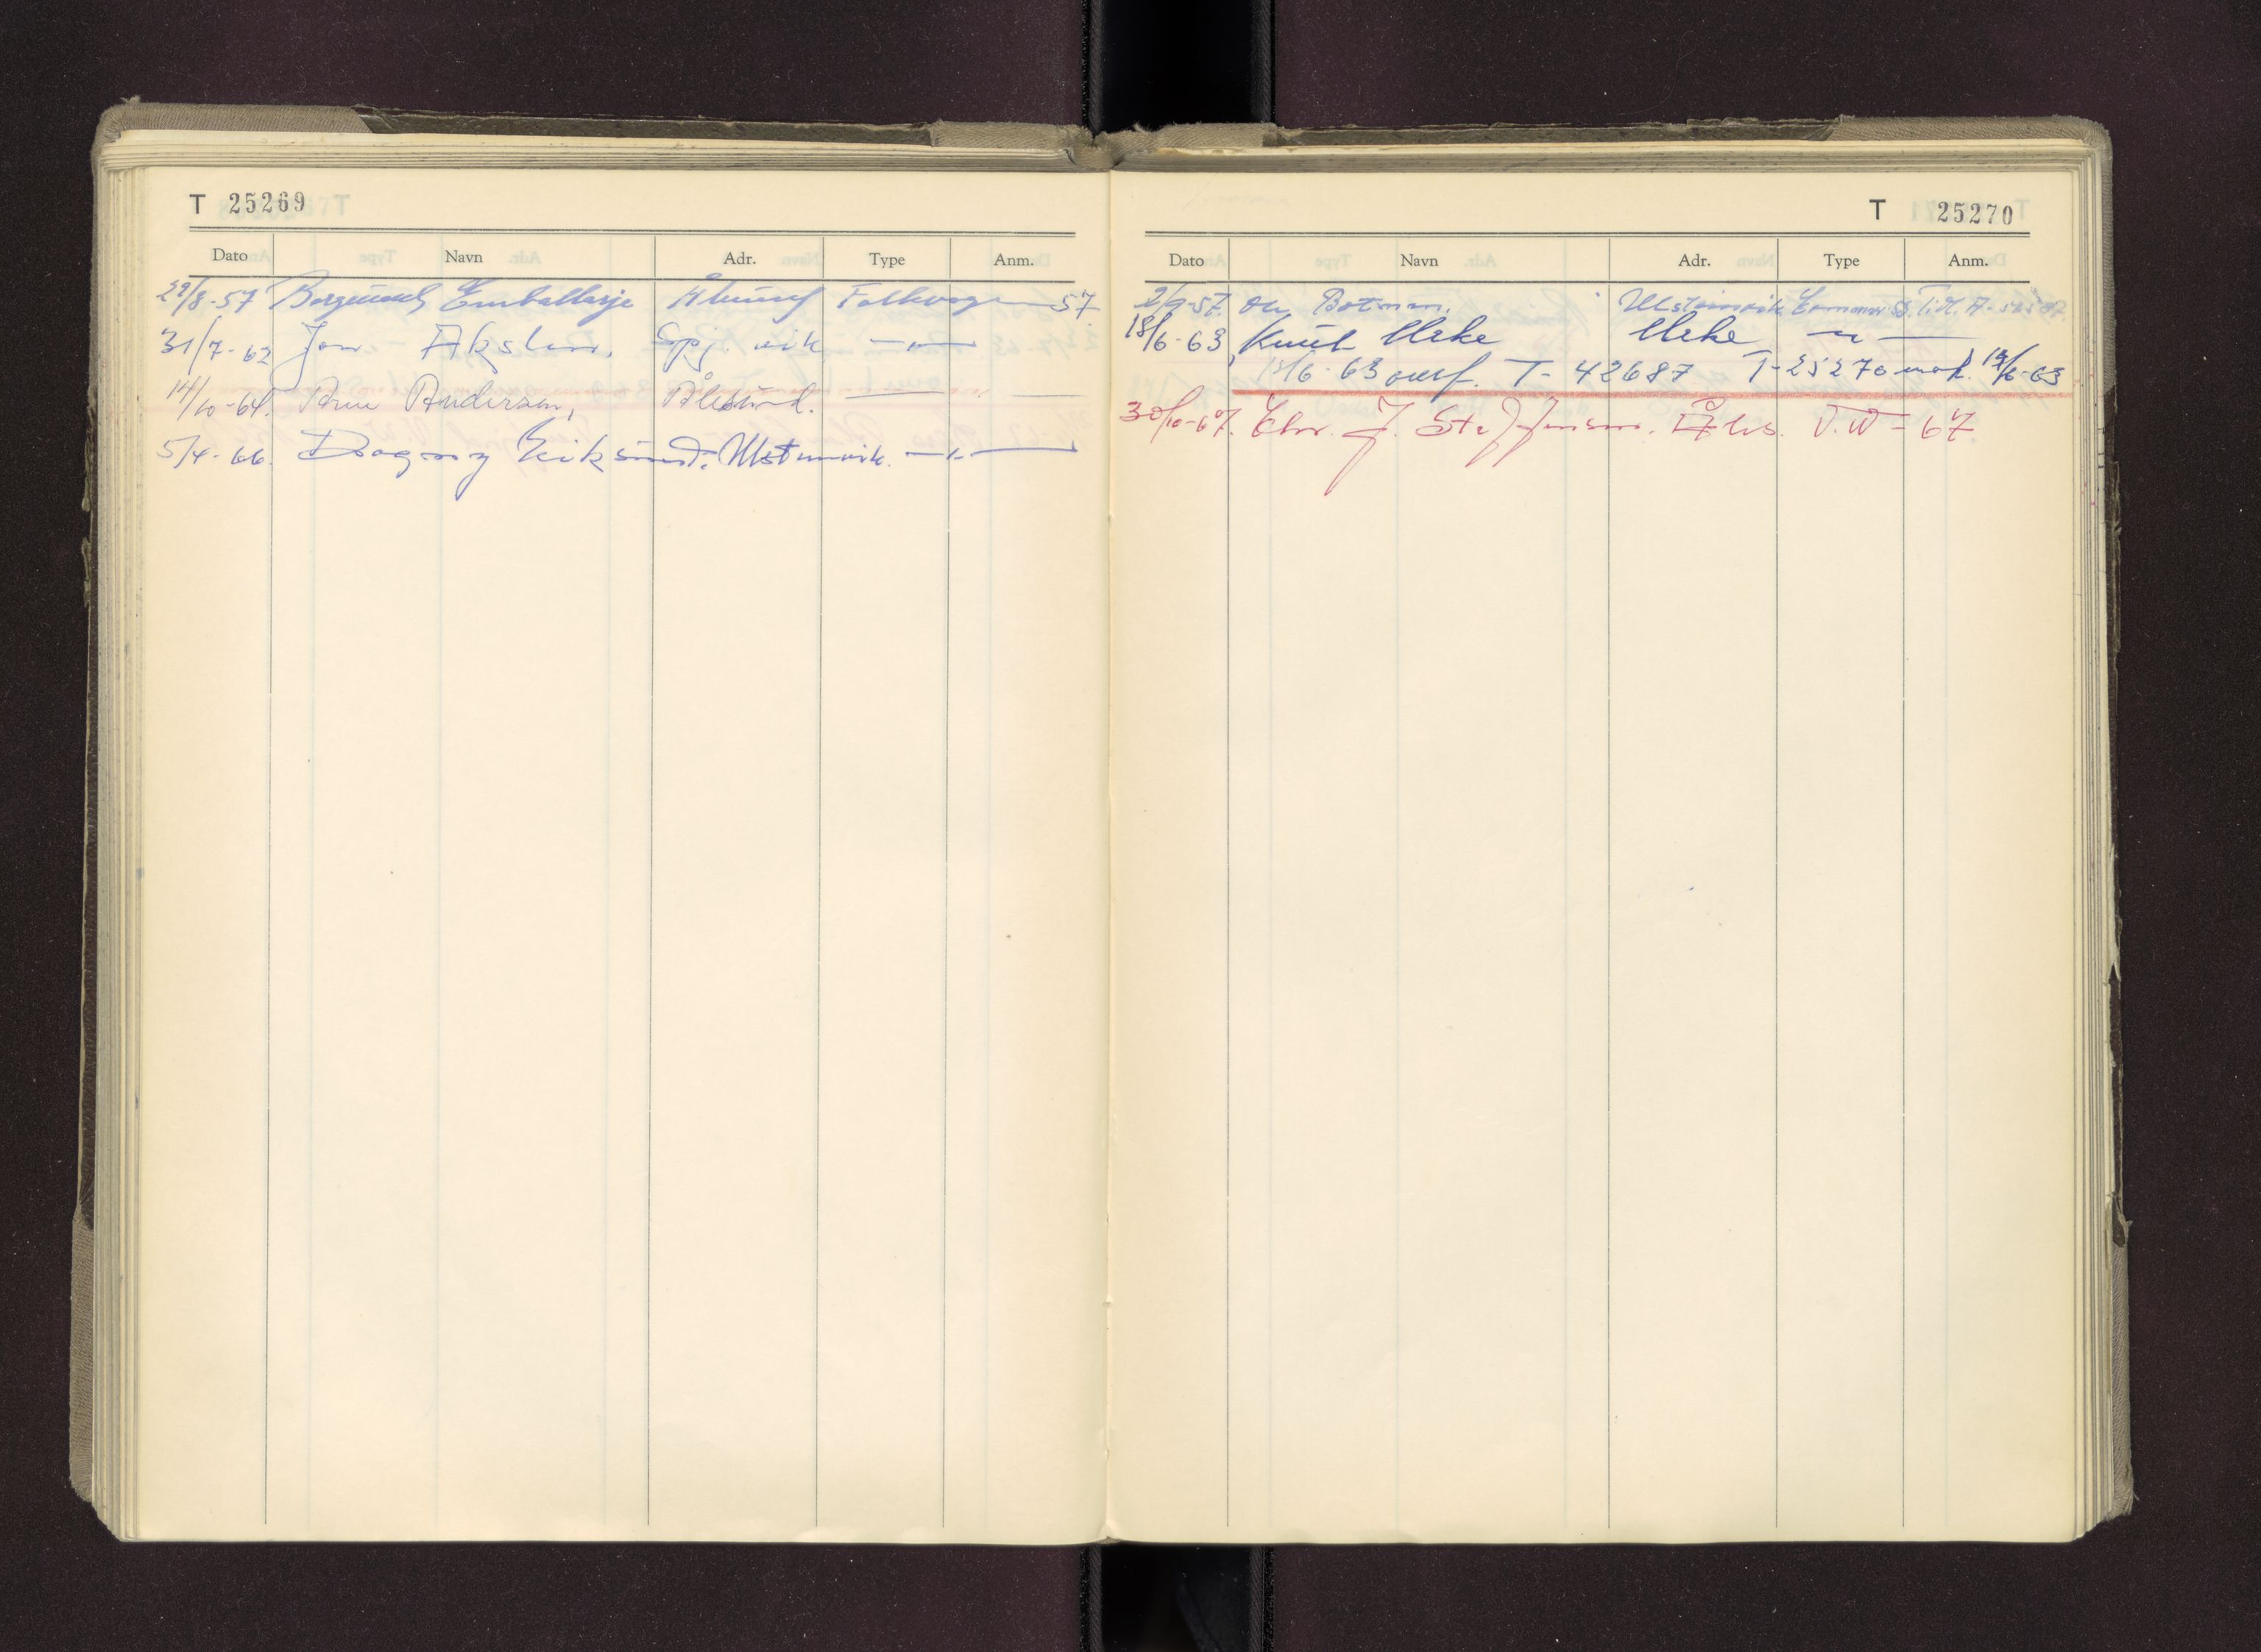 T 25269
Dato Navn Adr. Type Anm.
29/8-57 Borgund Emballasje Ålesund Folkevogn 57
31/7-62 Jon Akslen, Spj.vik —"—
14/10-64. Arne Andersen, Ålesund. —"—
5/4-66. Dagny Eiksund. Ulsteinvik. —"—
T 25270
Dato Navn Adr. Type Anm.
2/9-57. Botnen. Ulsteinvik
18/6-63 Knut Urke Urke —"—
6-63 overf. T-42687 T-25270 6-63
30/10-67. Chr. J. Åles. V.W-67